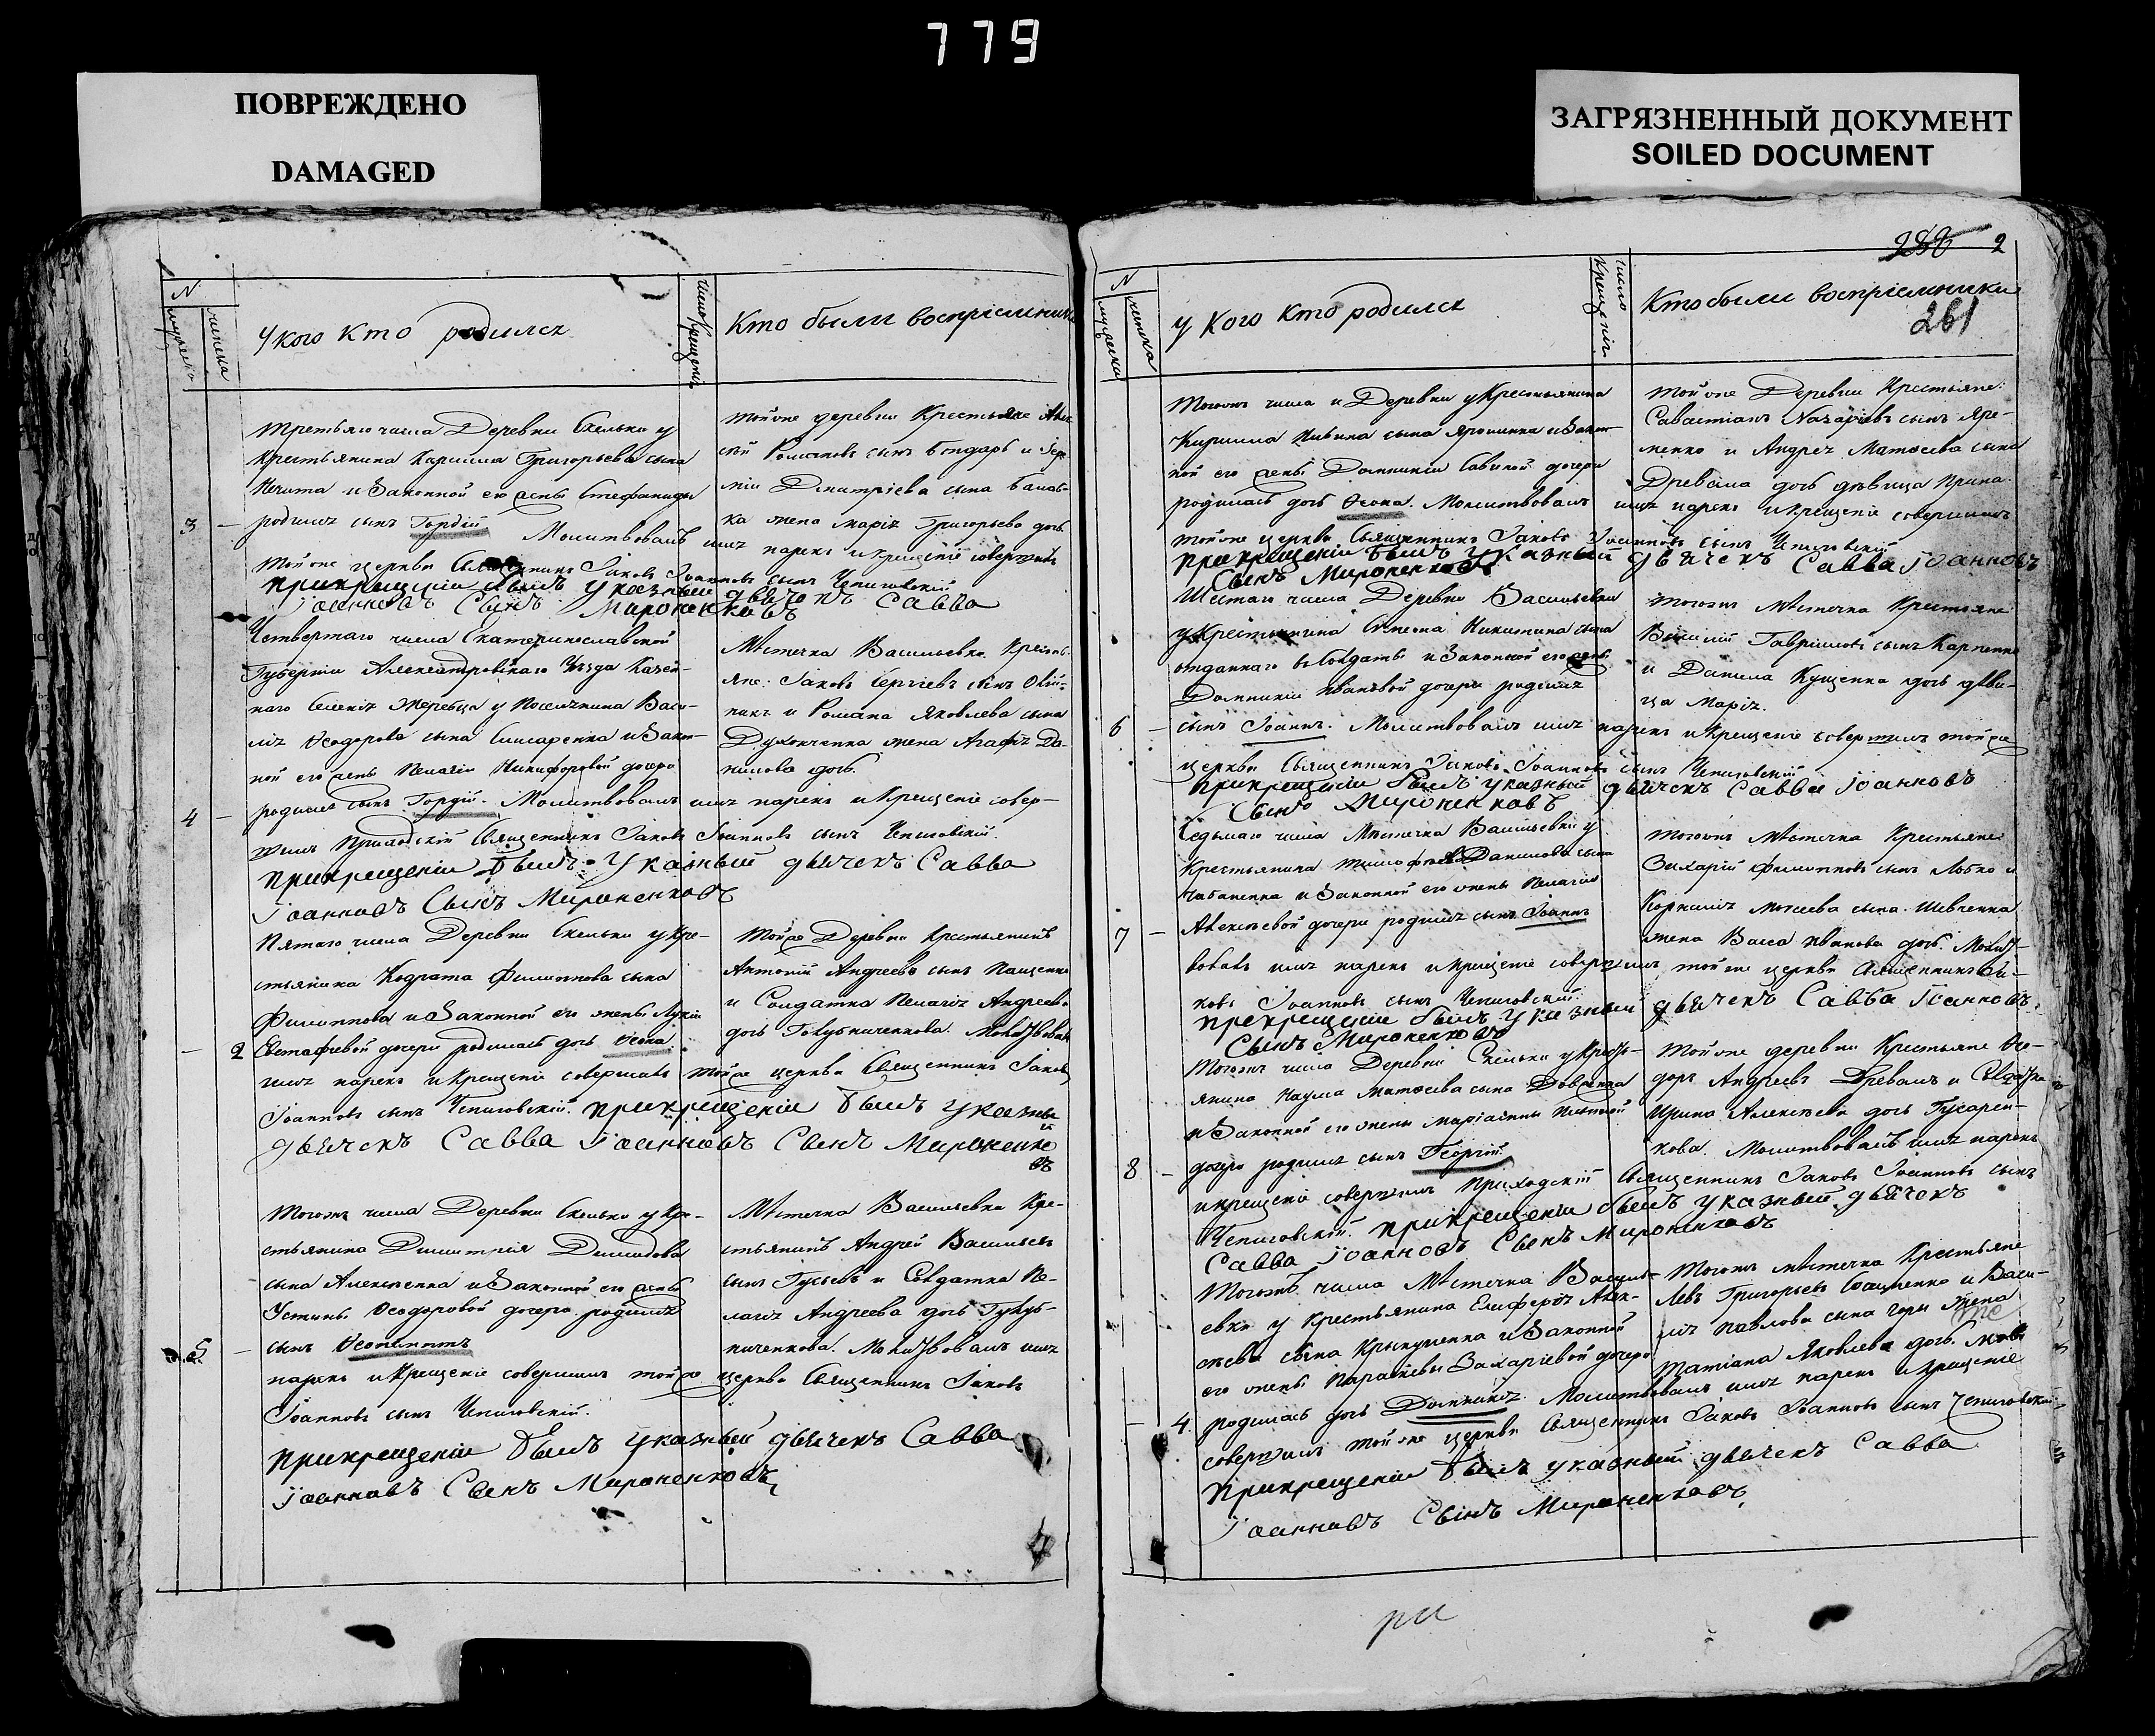 779
ПОВРЕЖДЕНО
DAMAGED
ЗАГРЯЗНЕННЫЙ ДОКУМЕНТ
SOILED DOCUMENT
N
мужеска
женска
У кого кто родился
число крещенія
Кто были воспріемники
третьяго числа Деревни Скельки у
крестьянина Кирилла Григорьева сына
и Законной его жены Стефаниды
3
родился сынъ Гордій Молитвовалъ имя нарекъ и крещеніе совершилъ
тойже церкви Священникъ Іаковъ Іоанновъ сынъ Чепиговскій
прикрещеніи былъ указный дьячекъ Савва
Іоанновъ Сынъ Мироненковъ
тойже деревни Крестьяне
Романовъ сынъ Бондарь и
Дмитріева сына
жена Марія Григорьева дочь
Четвертаго числа Екатеринославской
Губерніи Александровскаго Уѣзда Казен-
наго Селенія Жеребца у Поселянина Васи-
лія Ѳеодорова сына Слисаренка и Закон-
ной его жены Пелагіи Никифоровой дочери
4
родился сынъ Гордій. Молитвовалъ имя нарекъ и крещеніе совер-
шилъ Приходскій Священникъ Іаковъ Іоанновъ сынъ Чепиговскій.
прикрещеніи былъ Указный дьячекъ Савва
Іоанновъ Сынъ Мироненковъ
Мѣстечка Васильевки Кресть-
яне: Іаковъ Сергіевъ сынъ
и Романа Яковлева сына
жена Агафія Да-
нилова дочь.
Пятаго числа Деревни Скельки у кре-
стьянина Кодрата Филиппова сына
Филиппова и Законной его жены Лукіи
2
Евстафіевой дочери родилась дочь Ѳеона.
имя нарекъ и крещеніе совершилъ тойже церкви Священникъ Іаковъ
Іоанновъ сынъ Чепиговскій. прикрещеніи былъ указный
дьячекъ Савва Іоанновъ Сынъ Мироненковъ
Тойже Деревни Крестьянинъ
Антоній Андреевъ сынъ Пащенко
и Солдатка Пелагія Андреева
дочь Голубниченкова. Молитвовалъ
Тогожъ числа Деревни Скельки у Кре-
стьянина Димитрія Демидова
сына Алексеенка и Законной его жены
Устины Ѳеодоровой дочери родился
5
сынъ Ѳеопемптъ
нарекъ и крещеніе совершилъ тойже церкви Священникъ Іаковъ
Іоанновъ сынъ Чепиговскій.
прикрещеніи былъ указный дьячекъ Савва
Іоанновъ Сынъ Мироненковъ
Мѣстечка Васильевки Кре-
стьянинъ Андрей Васильевъ
сынъ Гусьевъ и Солдатка Пе-
лагія Андреева дочь Голуб-
ниченкова. Молитвовалъ имя
2
261
N
мужеска
женска
у кого кто родился
число крещенія
Кто были воспріемники
Тогожъ числа и Деревни у Крестьянина
Кирилла сына и Закон-
ной его жены Домникіи Савиной дочери
родилась дочь Ѳеона. Молитвовалъ имя нарекъ и крещеніе совершилъ
тойже церкви Священникъ Іаковъ Іоанновъ сынъ Чепиговскій
прикрещеніи былъ указный дьячекъ Савва Іоанновъ
Сынъ Мироненковъ
тойже Деревни Крестьяне:
Савастіанъ Назаріевъ сынъ Яре-
менко и Андрея Матвеева сына
Древаля дочь дѣвица Ирина.
Шестаго числа Деревни Васильевки
у Крестьянина Никитина сына
отданнаго въ Солдаты и Законной его жены
Домникіи Ивановой дочери родился
6
сынъ Іоаннъ. Молитвовалъ имя нарекъ и крещеніе совершилъ тойже
церкви Священникъ Іаковъ Іоанновъ сынъ Чепиговскій
прикрещеніи былъ указный дьячекъ Савва Іоанновъ
Сынъ Мироненковъ
тогожъ мѣстечка Крестьяне
Василій Гавриловъ сынъ Карпенко
и Данила Кущенка дочь дѣви-
ца Марія.
Седьмаго числа Мѣстечка Васильевки у
Крестьянина Тимофея Данилова сына
Чабаненка и Законной его жены Пелагіи
7
Алексеевой дочери родился сынъ Іоаннъ
вовалъ имя нарекъ и крещеніе совершилъ тойже церкви Священникъ Іа-
ковъ Іоанновъ сынъ Чепиговскій
прикрещеніи былъ указный дьячекъ Савва Іоанновъ
Сынъ Мироненковъ
тогожъ мѣстечка Крестьяне
Захарій Филипповъ сынъ и
Корнилія Моісеева сына Шевченка
жена Васса Иванова дочь. Молит-
Тогожъ числа Деревни Скельки у Кресть-
янина Наума Матвеева сына
и Законной его жены Маріамны
8
дочери родился сынъ Георгій.
и крещеніе совершилъ Приходскій Священникъ Іаковъ Іоанновъ сынъ
Чепиговскій. прикрещеніи былъ указный дьячекъ
Савва Іоанновъ Сынъ Мироненковъ
Тойже деревни Крестьяне Ѳео-
доръ Андреевъ Древаль и Солдатка
Ирина Алексеева дочь Гусарен-
кова. Молитвовалъ имя нарекъ
Тогожъ числа Мѣстечка Василь-
евки у Крестьянина Елиферія Алек-
сеева сына и Законной
его жены Параскевы Захаріевой дочери
4
родилась дочь Домникія. Молитвовалъ имя нарекъ и крещеніе
совершилъ тойже церкви Священникъ Іаковъ Іоанновъ сынъ Чепиговскій
прикрещеніи былъ указный дьячекъ Савва
Іоанновъ Сынъ Мироненковъ
Тогожъ мѣстечка Крестьяне
Левъ Григорьевъ и Васи-
лія Павлова сына жена
Татіана Яковлева дочь.